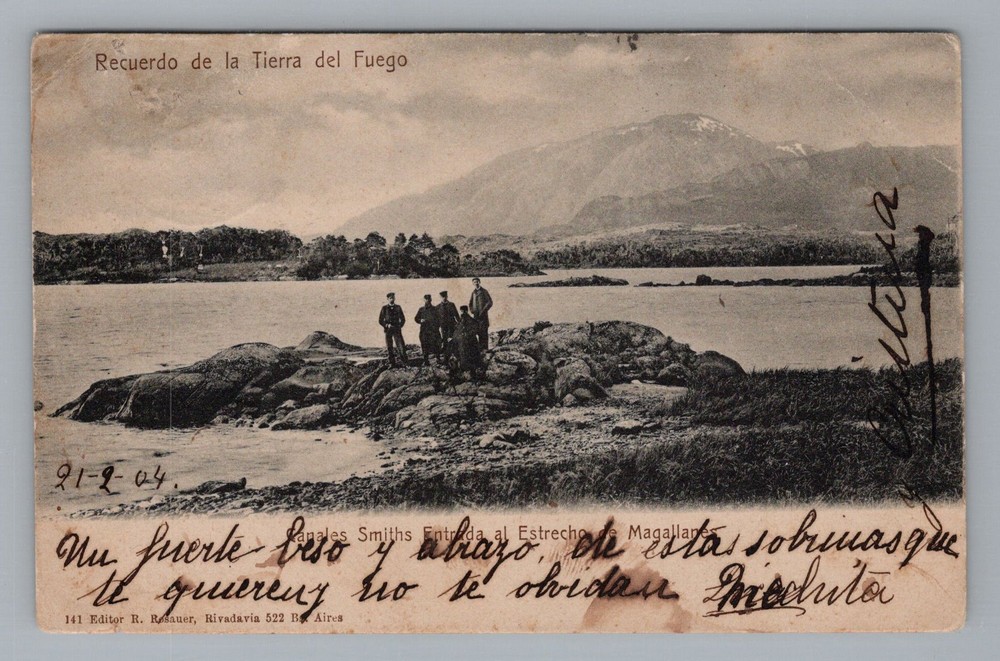 Recuerdo de la Tierra del Fuego
21-2-04.
Canales Smiths Entrada al Estrecho de Magallanes
Un fuerte beso y abrazo, de estas sobrinas que
te quieren y no te olvidan
141 Editor R. Rosauer, Rivadavia 522 Bs. Aires